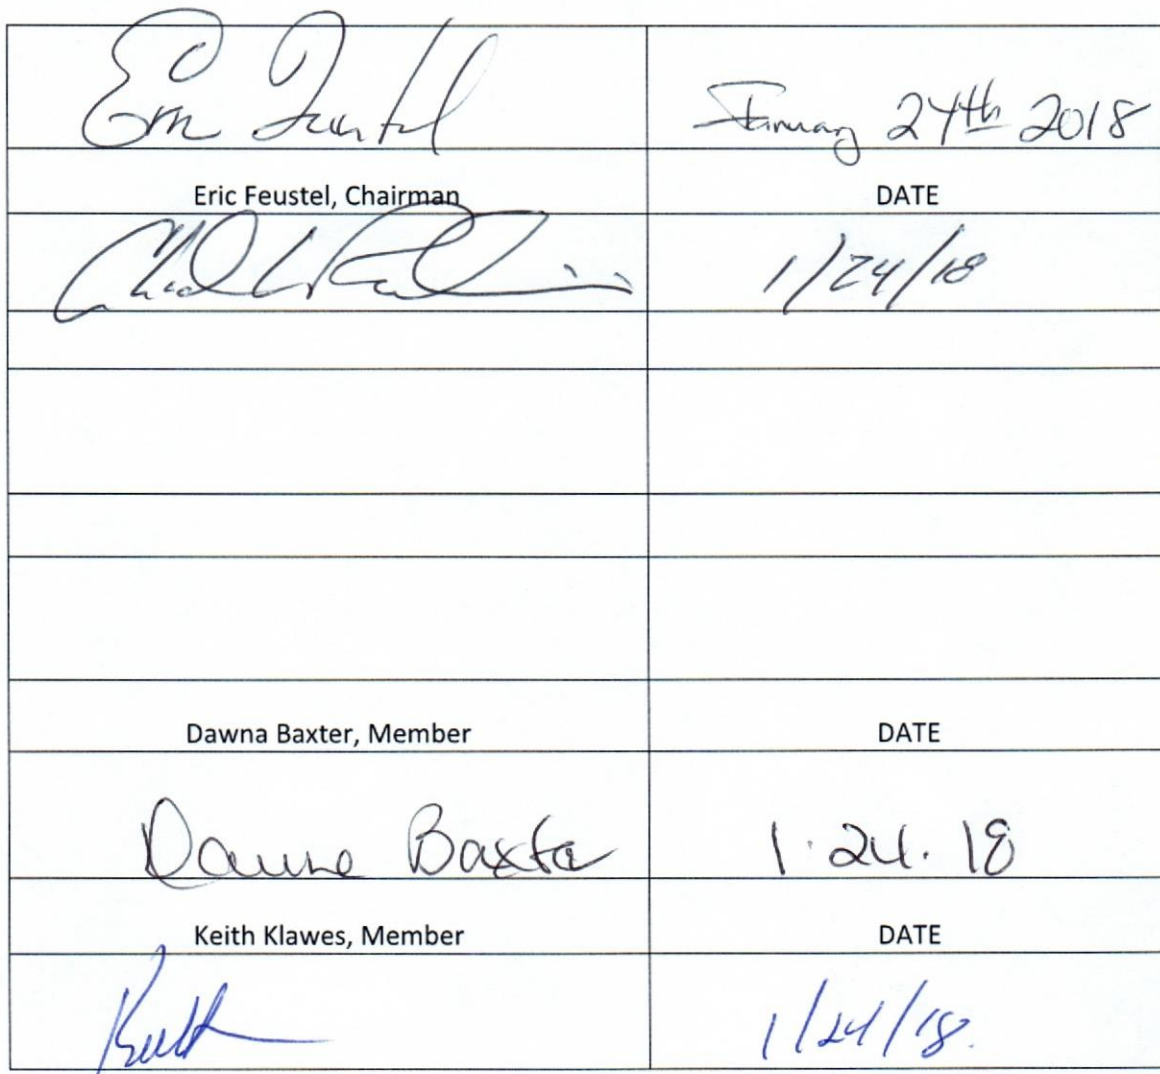 Eric Feustel January 24th 2018
Eric Feustel, Chairman DATE
1/24/18
Dawna Baxter, Member DATE
Dawna Baxter 1.24.18
Keith Klawes, Member DATE
Keith 1/24/18